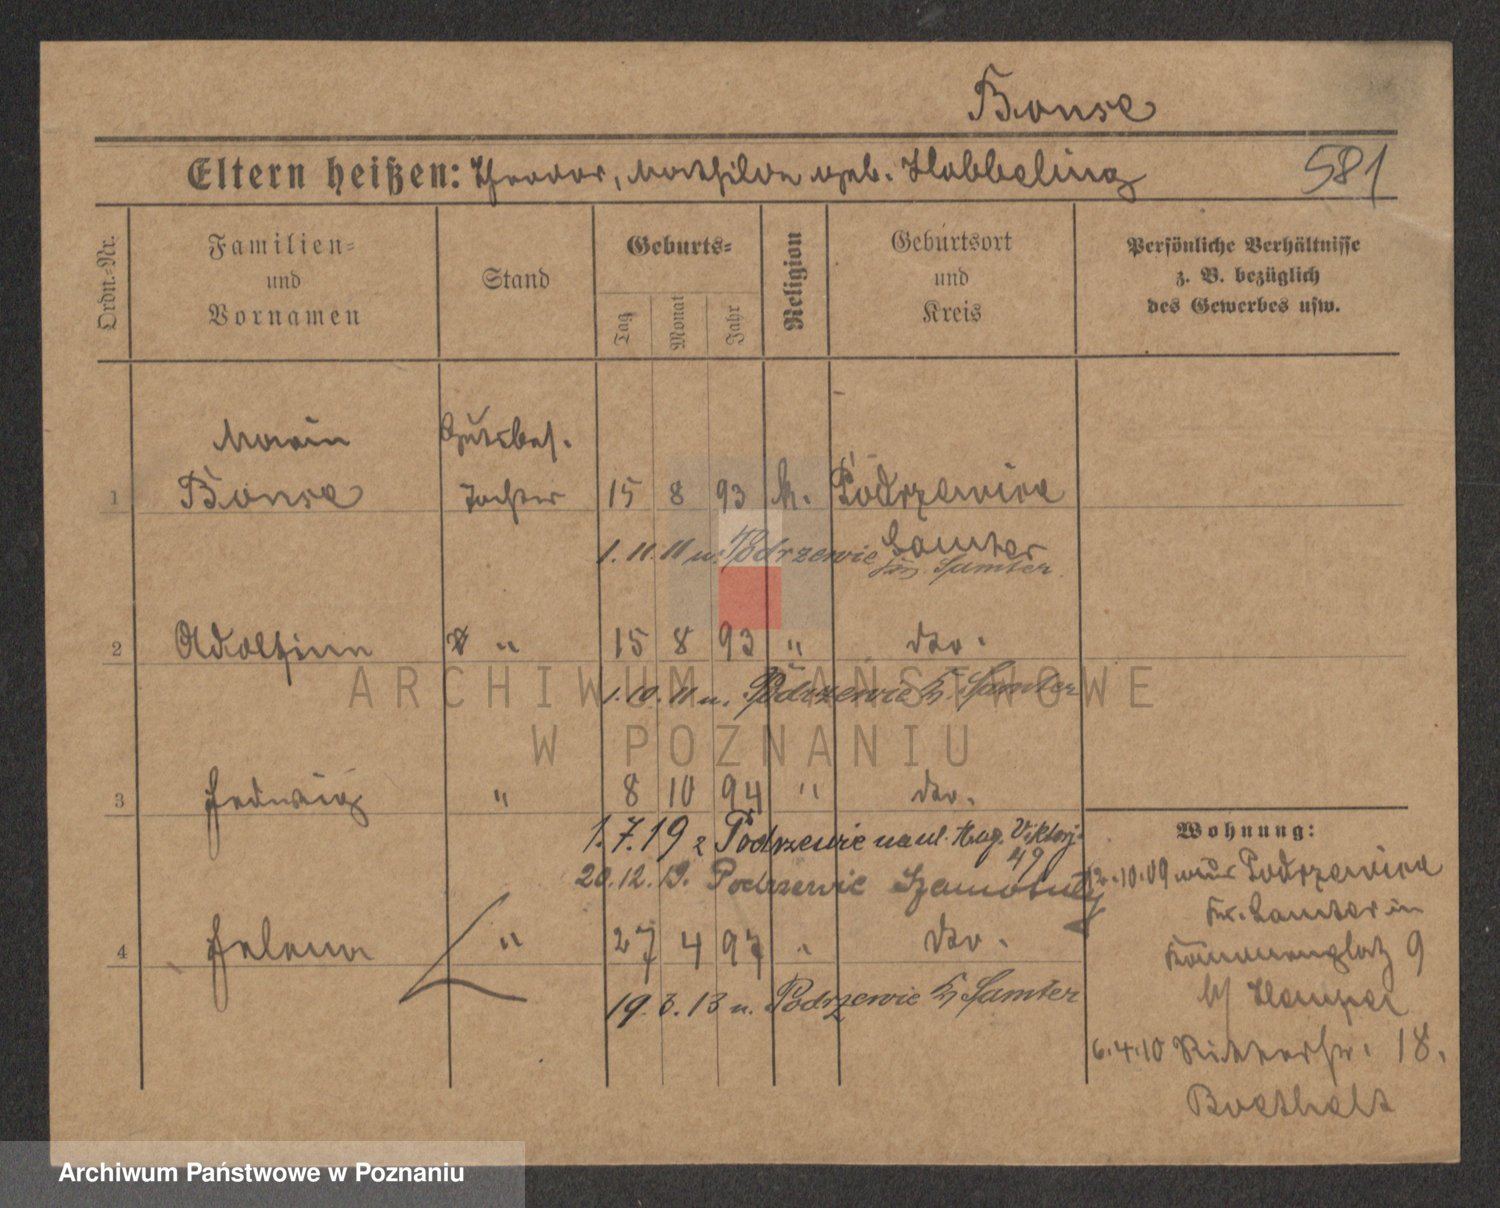 Bonse
Eltern heißen: Theodor, Mathilde geb. Hobbeling
581
Ordn.-Nr.
Familien=
und
Vornamen
Stand
Geburts=
Tag
Monat
Jahr
Religion
Geburtsort
und
Kreis
Persönliche Verhältnisse
z. B. bezüglich
des Gewerbes usw.
Maria Gutsbes.
1 Bonse Tochter 15 8 93 k. Podrzewice
Samter
1.11.11 n. Podrzewie Samter
2 Adolfine " 15 8 93 " dto.
1.10.11 n. Podrzewie Samter
3 Hedwig " 8 10 94 " dto.
1.7.19 z Podrzewie na ul. Mag. Viktorj.
49
20.12.19. Podrzewie Szamotuły
4 Helene " 27 4 97 " dto.
19.3.13 n. Podrzewie Samter
Wohnung:
2.10.09 aus Podrzewice
Kr. Samter in
9
6.4.10 Ritterstr. 18.
ARCHIWUM PAŃSTWOWE
W POZNANIU
Archiwum Państwowe w Poznaniu